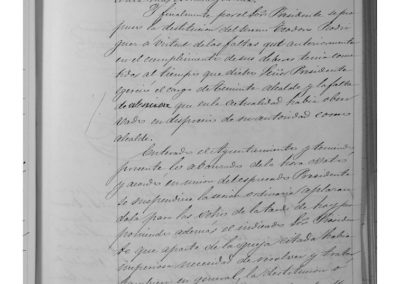 Y finalmente por el Sr. Presidente se pro-
puso la destitucion del Sereno Teodoro Rodri-
guez a virtud de las faltas que anteriormente
en el cumplimiento de sus deberes tenia come-
tidas al tiempo que dicho Señor Presidente
ejercia el cargo de Teniente Alcalde y la falta
de que en la actualidad habia obser-
vado en desprecio de su autoridad como
alcalde.
Enterados el Ayuntamiento y teniendo
presente lo abanzado de la hora
y acordó en union del espresado Presidente
se suspendiera la sesion ordinaria aplazan-
dola para las ocho de la tarde de hoy, pro-
poniendo ademas el indicado Sr. Presiden-
te que aparte de la queja citada habia
imperiosa necesidad de resolver y tratar
tambien en general, la destitucion o